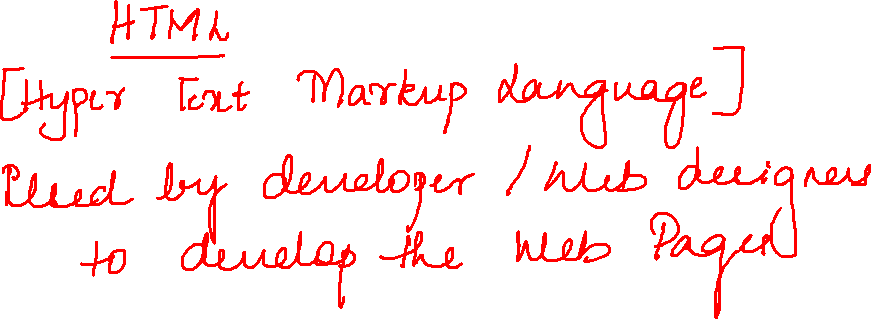 HTML
[Hyper Text Markup Language]
Used by developer / Web designers
to develop the Web Pages